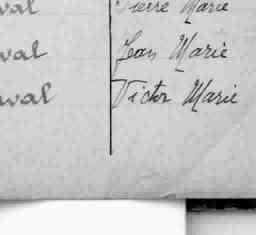 val Pierre Marie
val Jean Marie
val Victor Marie